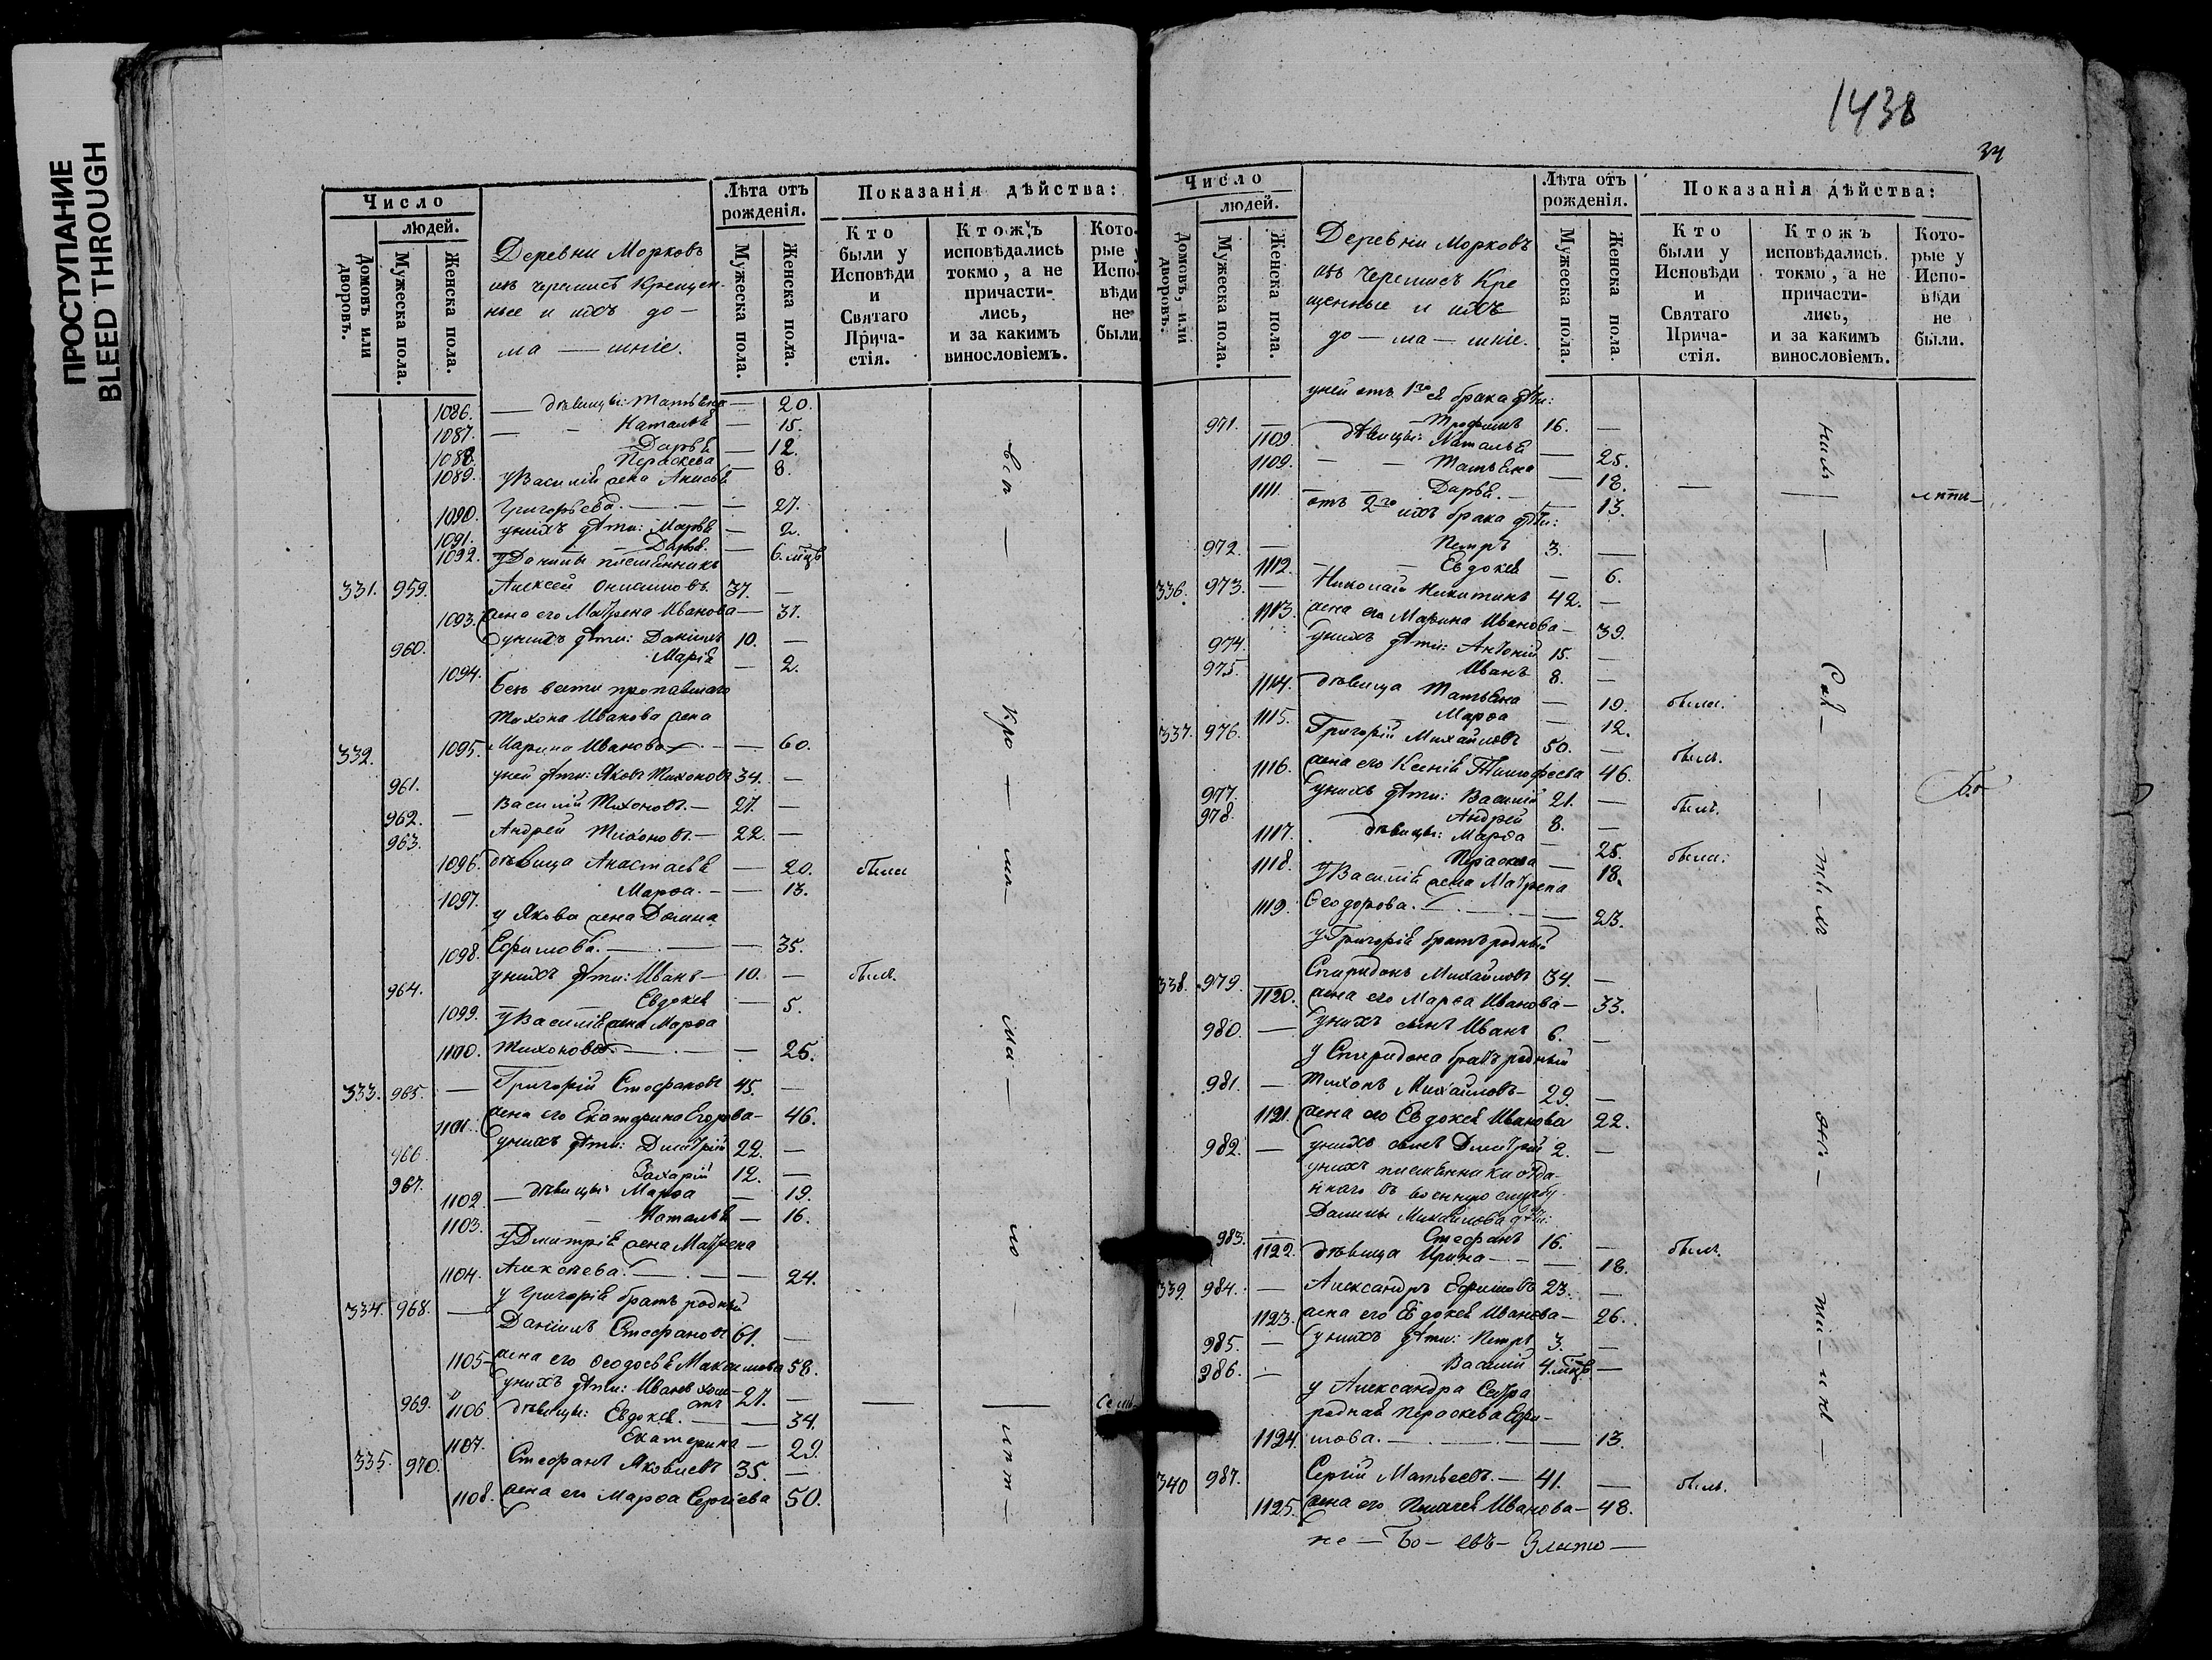 ПРОСТУПАНИЕ
BLEED THROUGH
Число
людей.
Домовъ или дворовъ.
Мужеска пола.
Женска пола.
Деревни Морковъ
изъ черемисъ крещен-
ные и ихъ до-
ма — шніе.
Лѣта отъ рожденія.
Мужеска пола.
Женска пола.
Показанія дѣйства:
Кто были у Исповѣди и Святаго Прича-стія.
Ктожъ исповѣдались токмо, а не причасти-лись, и за какимъ винословіемъ.
Кото-рые у Испо-вѣди не были.
1086. — дѣвицы: Татьяна — 20.
1087. — - Наталья — 15.
1088. Дарья — 12.
1089. Пераскева — 8.
у Василія жена Анисья
1090. Григорьева. — — 27.
1091. у нихъ дѣти: Марья — 2.
1092. — Дарья. — 6. мцъ
у Данилы племянникъ
331. 959. Алексей Онисимовъ 37. —
1093. жена его Матрена Иванова — 37.
960. у нихъ дѣти: Даніилъ 10. —
1094. Марія — 2.
Безъ вести пропавшаго
Тихона Иванова жена
332. 1095. Марина Иванова — — 60.
961. у ней дѣти: Яковъ Тихоновъ 34. —
962. — Василій Тихоновъ — 27. —
963. Андрей Тихоновъ — 22. —
1096. дѣвица Анастасья — 20. была
1097. Марѳа. — — 13.
у Якова жена Домна
1098. Ефимова. — — — 35.
964. у нихъ дѣти: Иванъ — 10. — былъ.
1099. Евдокея — 5.
у Василія жена Марѳа
1100. Тихонова. — — 25.
333. 965. — Григорій Стефановъ 45. —
1101. жена его Екатерина Егорова — 46.
966. у нихъ дѣти: Дмитрій 22. —
967. Захарій 12. —
1102 — дѣвицы: Марѳа — 19.
1103. Наталья — 16.
у Дмитрія жена Матрена
1104. Алексѣева. — — — 24.
у Григорія братъ родный
334. 968. — Даніилъ Стефановъ 61. —
1105 — жена его Ѳеодосья Максимова 58.
969. у нихъ дѣти: Иванъ холо-
стъ 27. —
1106. дѣвицы: Евдокея. — — 34.
1107. Екатерина — 29.
335. 970. Стефанъ Яковлевъ 35. —
1108. жена его Марѳа Сергіева 50.
1438
Число
людей.
Домовъ, или дворовъ.
Мужеска пола.
Женска пола.
Деревни Морковъ
изъ Черемисъ Кре
щенные и ихъ
до — ма — шніе.
Лѣта отъ рожденія.
Мужеска пола.
Женска пола.
Показанія дѣйства:
Кто были у Исповѣди и Святаго Прича-стія.
Ктожъ исповѣдались токмо, а не причасти-лись, и за какимъ винословіемъ.
Кото-рые у Испо-вѣди не были.
у ней отъ 1го ея брака дѣти:
971. — Трофимъ 16. —
1109. дѣвицы: Наталья — 25.
1109. — — Татьяна — 18.
1111. — Дарья. — — 13.
отъ 2го ихъ брака дѣти:
972. — Петръ 3. —
1112. — Евдокея — 6.
336. 973. — Николай Никитинъ 42. —
1113. жена его Марина Иванова — 39.
974. у нихъ дѣти: Антоній 15. —
975. Иванъ 8. —
1114. дѣвица Татьяна — 19. была.
1115. Марѳа — 12.
337. 976. Григорій Михайловъ 50. — былъ.
1116. жена его Ксенія Тимофеева 46.
977. у нихъ дѣти: Василій 21. — былъ.
978. Андрей 8. —
1117. дѣвицы: Марѳа — 25. была.
1118. Пераскева — 18.
у Василія жена Матрена
1119. Ѳеодорова. — — 23.
у Григорія братъ родный
338. 979. Спиридонъ Михайловъ 34. —
1120. жена его Марѳа Иванова — 33.
980. — у нихъ сынъ Иванъ 6. —
у Спиридона братъ родный
981. — Тихонъ Михайловъ — 29 —
1121. жена его Евдокея Иванова 22.
982. — у нихъ сынъ Дмитрій 2. —
у нихъ племянники отда-
ннаго въ военную службу
Данилы Михайлова дѣти:
983. — Стефанъ 16. — былъ.
1122. дѣвица Ирина — — 18.
339. 984. — Александръ Ефимовъ 23. —
1123. жена его Евдокея Иванова — 26.
985. — у нихъ дѣти: Петръ 3. —
986. — Василій 4. мцъ —
у Александра Сестра
родная Пераскева Ефи-
1124. мова. — — — 13.
340 987. Сергій Матвеевъ — 41. — былъ.
1125. жена его Пелагея Иванова — 48.